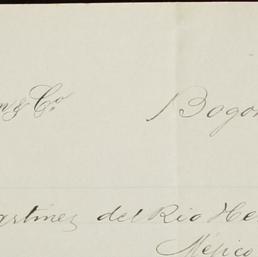 n & Co Bogo
artinez del Rio He
Méjico